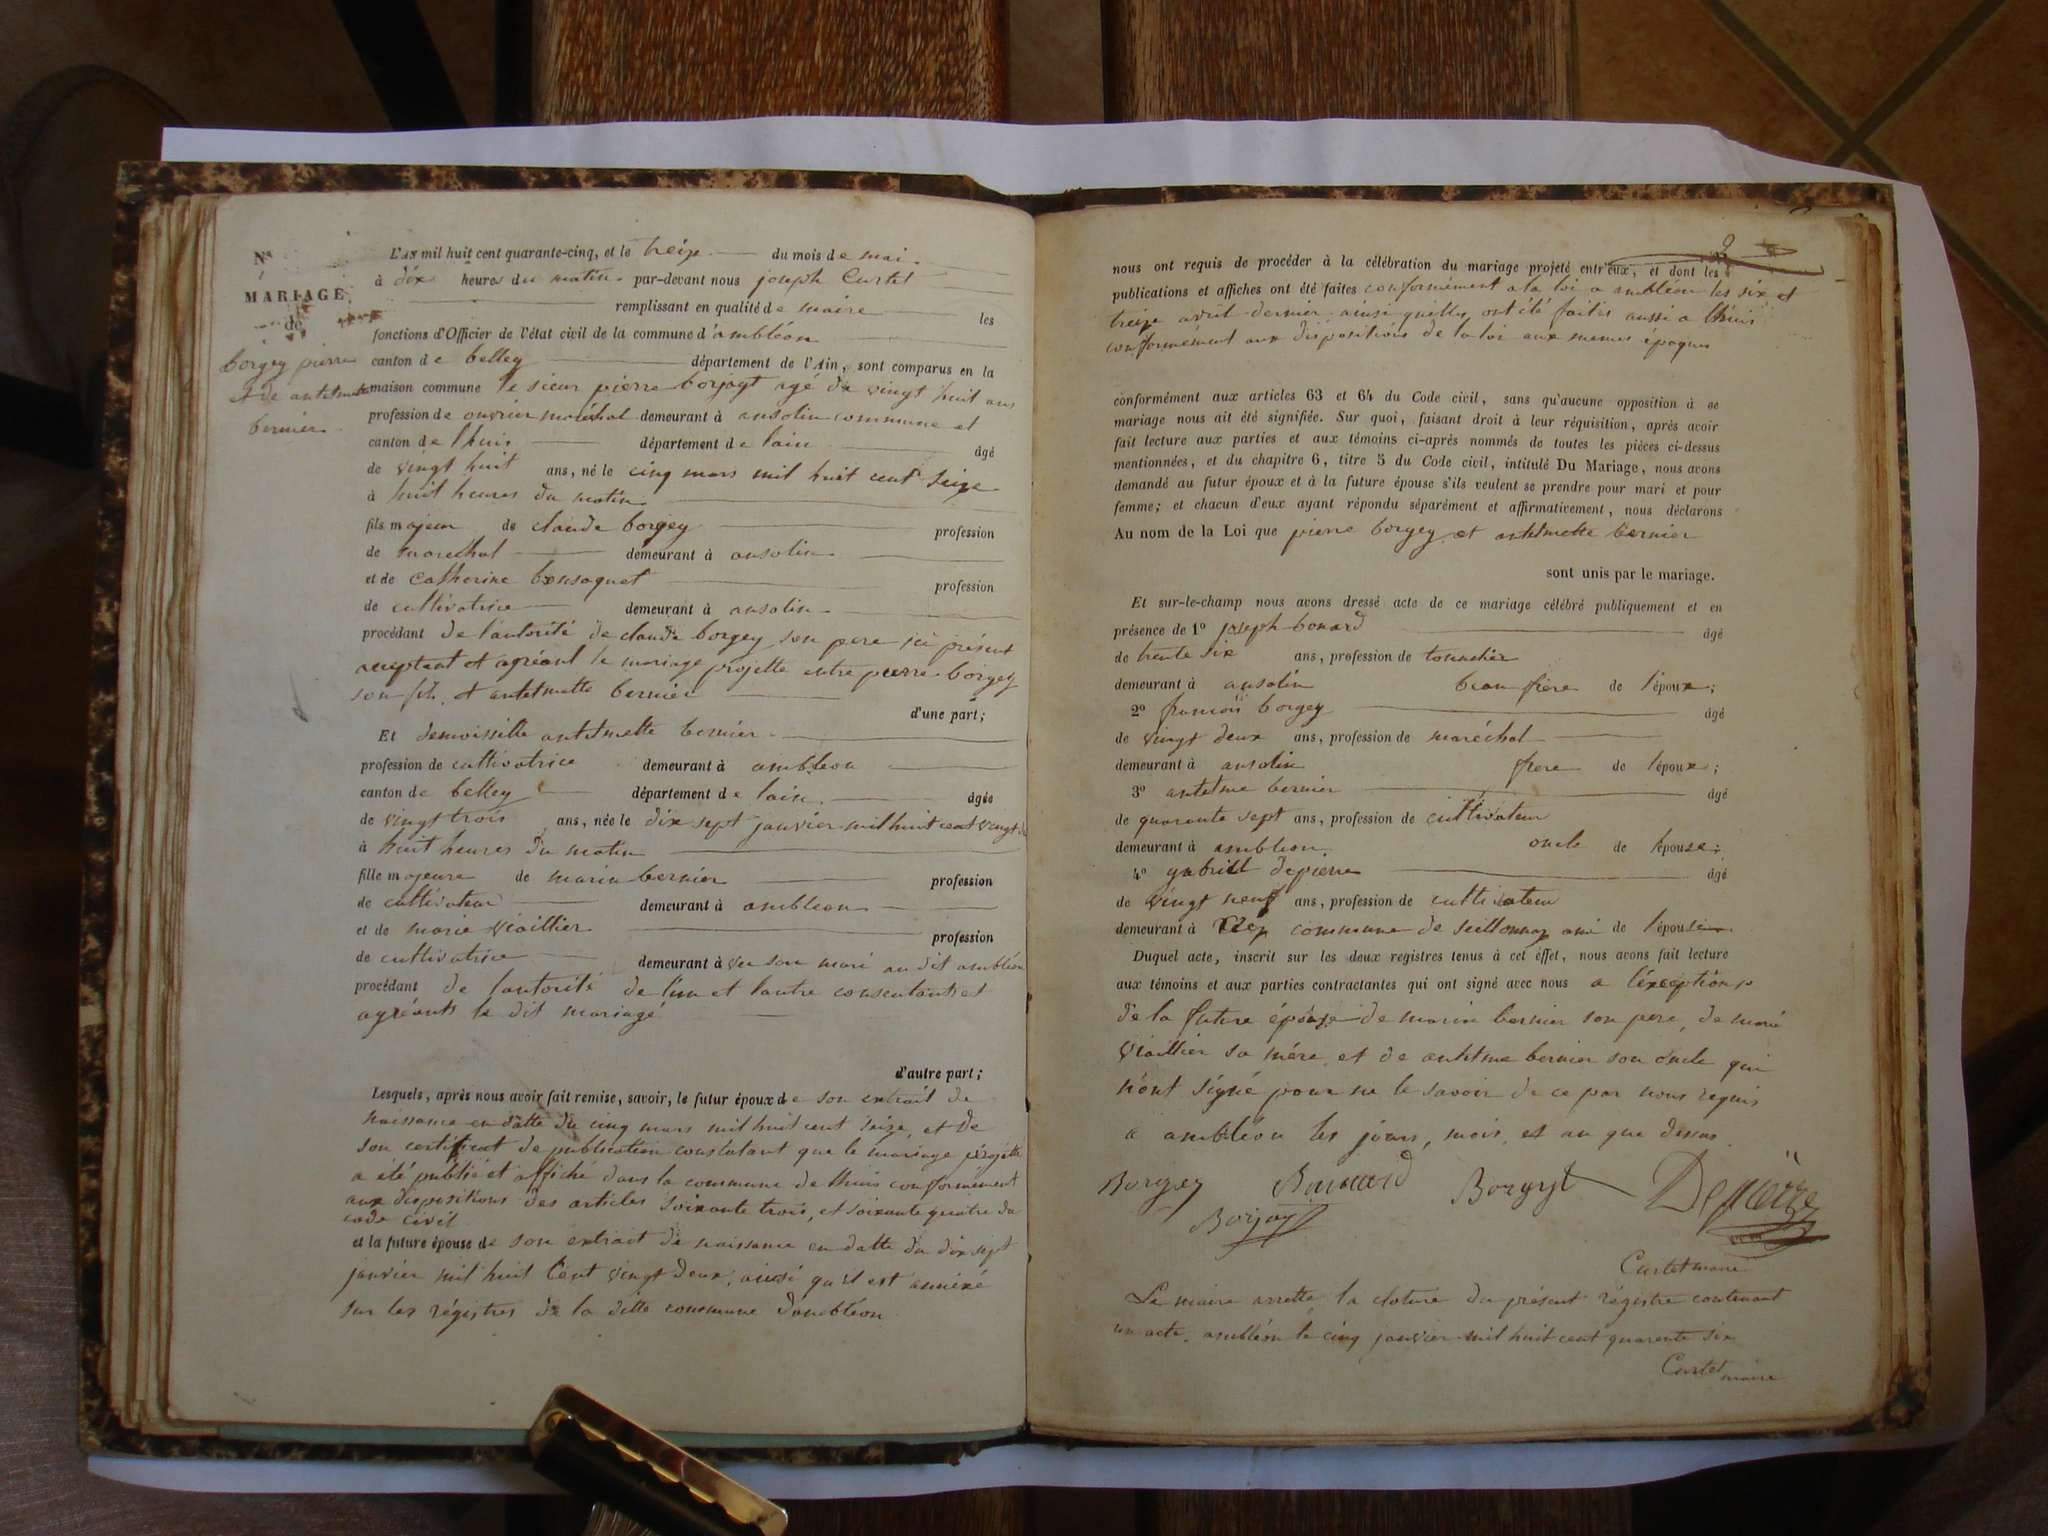 N.º
MARIAGE
de
borgey pierre
et de antelmette
bernier
L'AN mil huit cent quarante-cinq, et le treize du mois de mai
à dix heures du matin par-devant nous joseph Curtet
remplissant en qualité de maire les
fonctions d'Officier de l'état civil de la commune d'ambléon
canton de belley département de l'Ain, sont comparus en la
maison commune le sieur pierre borjayt agé de vingt huit ans
profession de ouvrier maréchal demeurant à ansolin commune et
canton de lhuis département de lain âgé
de vingt huit ans, né le cinq mars mil huit cent seize
à huit heures du matin
fils majeur de claude borgey profession
de marechal demeurant à ansolin
et de catherine profession
de cultivatrice demeurant à ansolin
procédant de lautorité de claude borgey son pere ici présent
acceptant et agréant le mariage projetté entre pierre borgey
son fils et antelmette bernier
d'une part;
Et demoiselle antelmette bernier
profession de cultivatrice demeurant à ambléon
canton de belley département de lain âgée
de vingt trois ans, née le dix sept janvier mil huit cent vingt
à huit heures du matin
fille majeure de marin bernier profession
de cultivateur demeurant à ambleon
et de marie viaillier profession
de cultivatrice demeurant à son mari au dit ambléon
procédant de lautorité de l'un et lautre consentants et
agréants le dit mariage
d'autre part;
Lesquels, après nous avoir fait remise, savoir, le futur époux de son extrait de
naissance en datte du cinq mars mil huit cent seize, et de
son certificat de publication constatant que le mariage projetté
a été publié et affiché dans la commune de lhuis conformément
aux dispositions des articles soixante trois, et soixante quatre du
code civil
et la future épouse de son extrait de naissance en datte du dix sept
janvier mil huit Cent vingt deux, ainsi qu'il est annexé
sur les régistres de la ditte commune dambléon
nous ont requis de procéder à la célébration du mariage projeté entr'eux, et dont les
publications et affiches ont été faites conformément a la loi a ambléon les six et
treize avril dernier ainsi quelles ont été faites aussi a lhuis
conformément aux dispositions de la loi aux memes époques
conformément aux articles 63 et 64 du Code civil, sans qu'aucune opposition à ce
mariage nous ait été signifiée. Sur quoi, faisant droit à leur réquisition, après avoir
fait lecture aux parties et aux témoins ci-après nommés de toutes les pièces ci-dessus
mentionnées, et du chapitre 6, titre 5 du Code civil, intitulé Du Mariage, nous avons
demandé au futur époux et à la future épouse s'ils veulent se prendre pour mari et pour
femme; et chacun d'eux ayant répondu séparément et affirmativement, nous déclarons
Au nom de la Loi que pierre borgey et antelmette bernier
sont unis par le mariage.
Et sur-le-champ nous avons dressé acte de ce mariage célébré publiquement et en
présence de 1º joseph bonard âgé
de trente six ans, profession de
demeurant à ansolin beau frere de l'époux;
2º francois borgey âgé
de vingt deux ans, profession de maréchal
demeurant à ansolin frere de l'époux;
3º antelme bernier âgé
de quarante sept ans, profession de cultivateur
demeurant à ambleon oncle de l'épouse;
4º gabriel depierre âgé
de vingt neuf ans, profession de cultivateur
demeurant à commune de seillonnaz ami de l'épouse
Duquel acte, inscrit sur les deux registres tenus à cet effet, nous avons fait lecture
aux témoins et aux parties contractantes qui ont signé avec nous a l'éxception
de la future épouse de marin bernier son pere, de marie
viaillier sa mére et de antelme bernier son oncle qui
n'ont signé pour ne le savoir de ce par nous requis
a ambléon les jours, mois, et an que dessus
Borgey Bonnard Borgeyt Depierre
Borjayt
Curtet maire
Le maire arrette la cloture du présent régistre contenant
un acte. ambléon le cinq janvier mil huit cent quarente six
Curtet maire